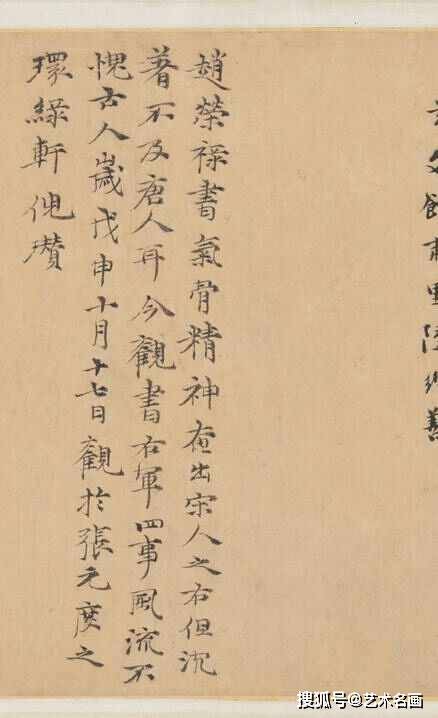 文館甫里陸繼善
趙榮祿書氣骨精神奄出宋人之右但沉
著不及唐人耳今觀書右軍四事風流不
愧古人歲戊申十月十七日觀於張元度之
環綠軒倪瓚
搜狐号@艺术名画